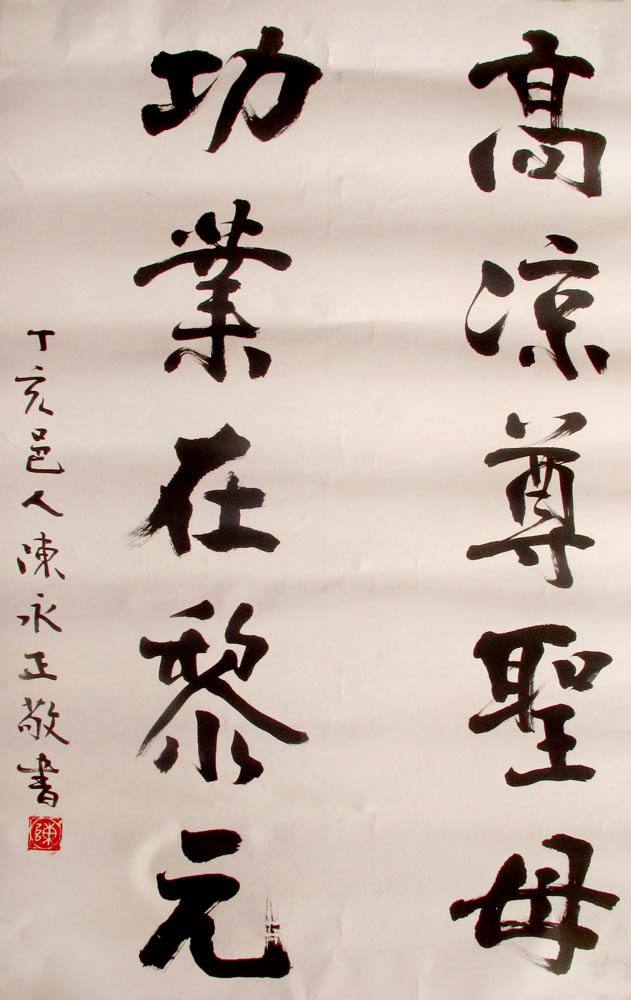 高涼尊聖母
功業在黎元
丁亥邑人陳永正敬書
陳